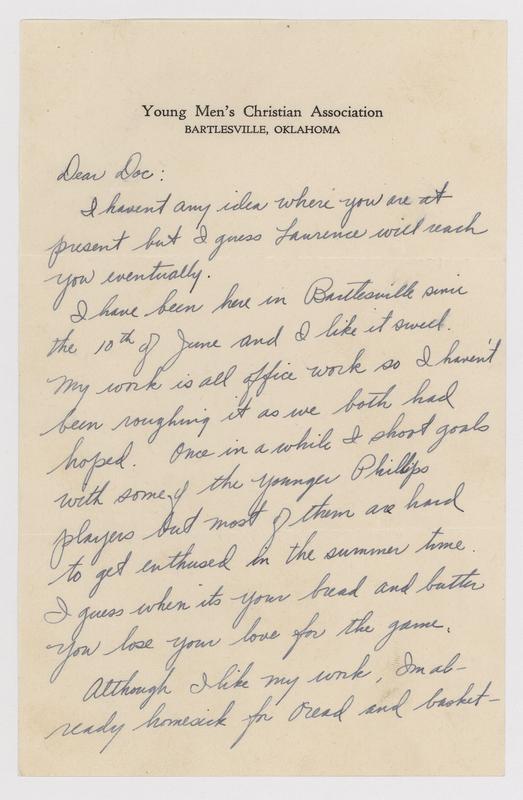 Young Men's Christian Association
BARTLESVILLE, OKLAHOMA
Dear Doc:
I havent any idea where you are at
present but I guess Lawrence will reach
you eventually.
I have been here in Bartlesville since
the 10th of June and I like it swell.
My work is all office work so I haven't
been roughing it as we both had
hoped. Once in a while I shoot goals
with some of the younger Phillips
players but most of them are hard
to get enthused in the summer time.
I guess when its your bread and butter
you lose your love for the game.
Although I like my work, Im al-
ready homesick for Oread and basket-